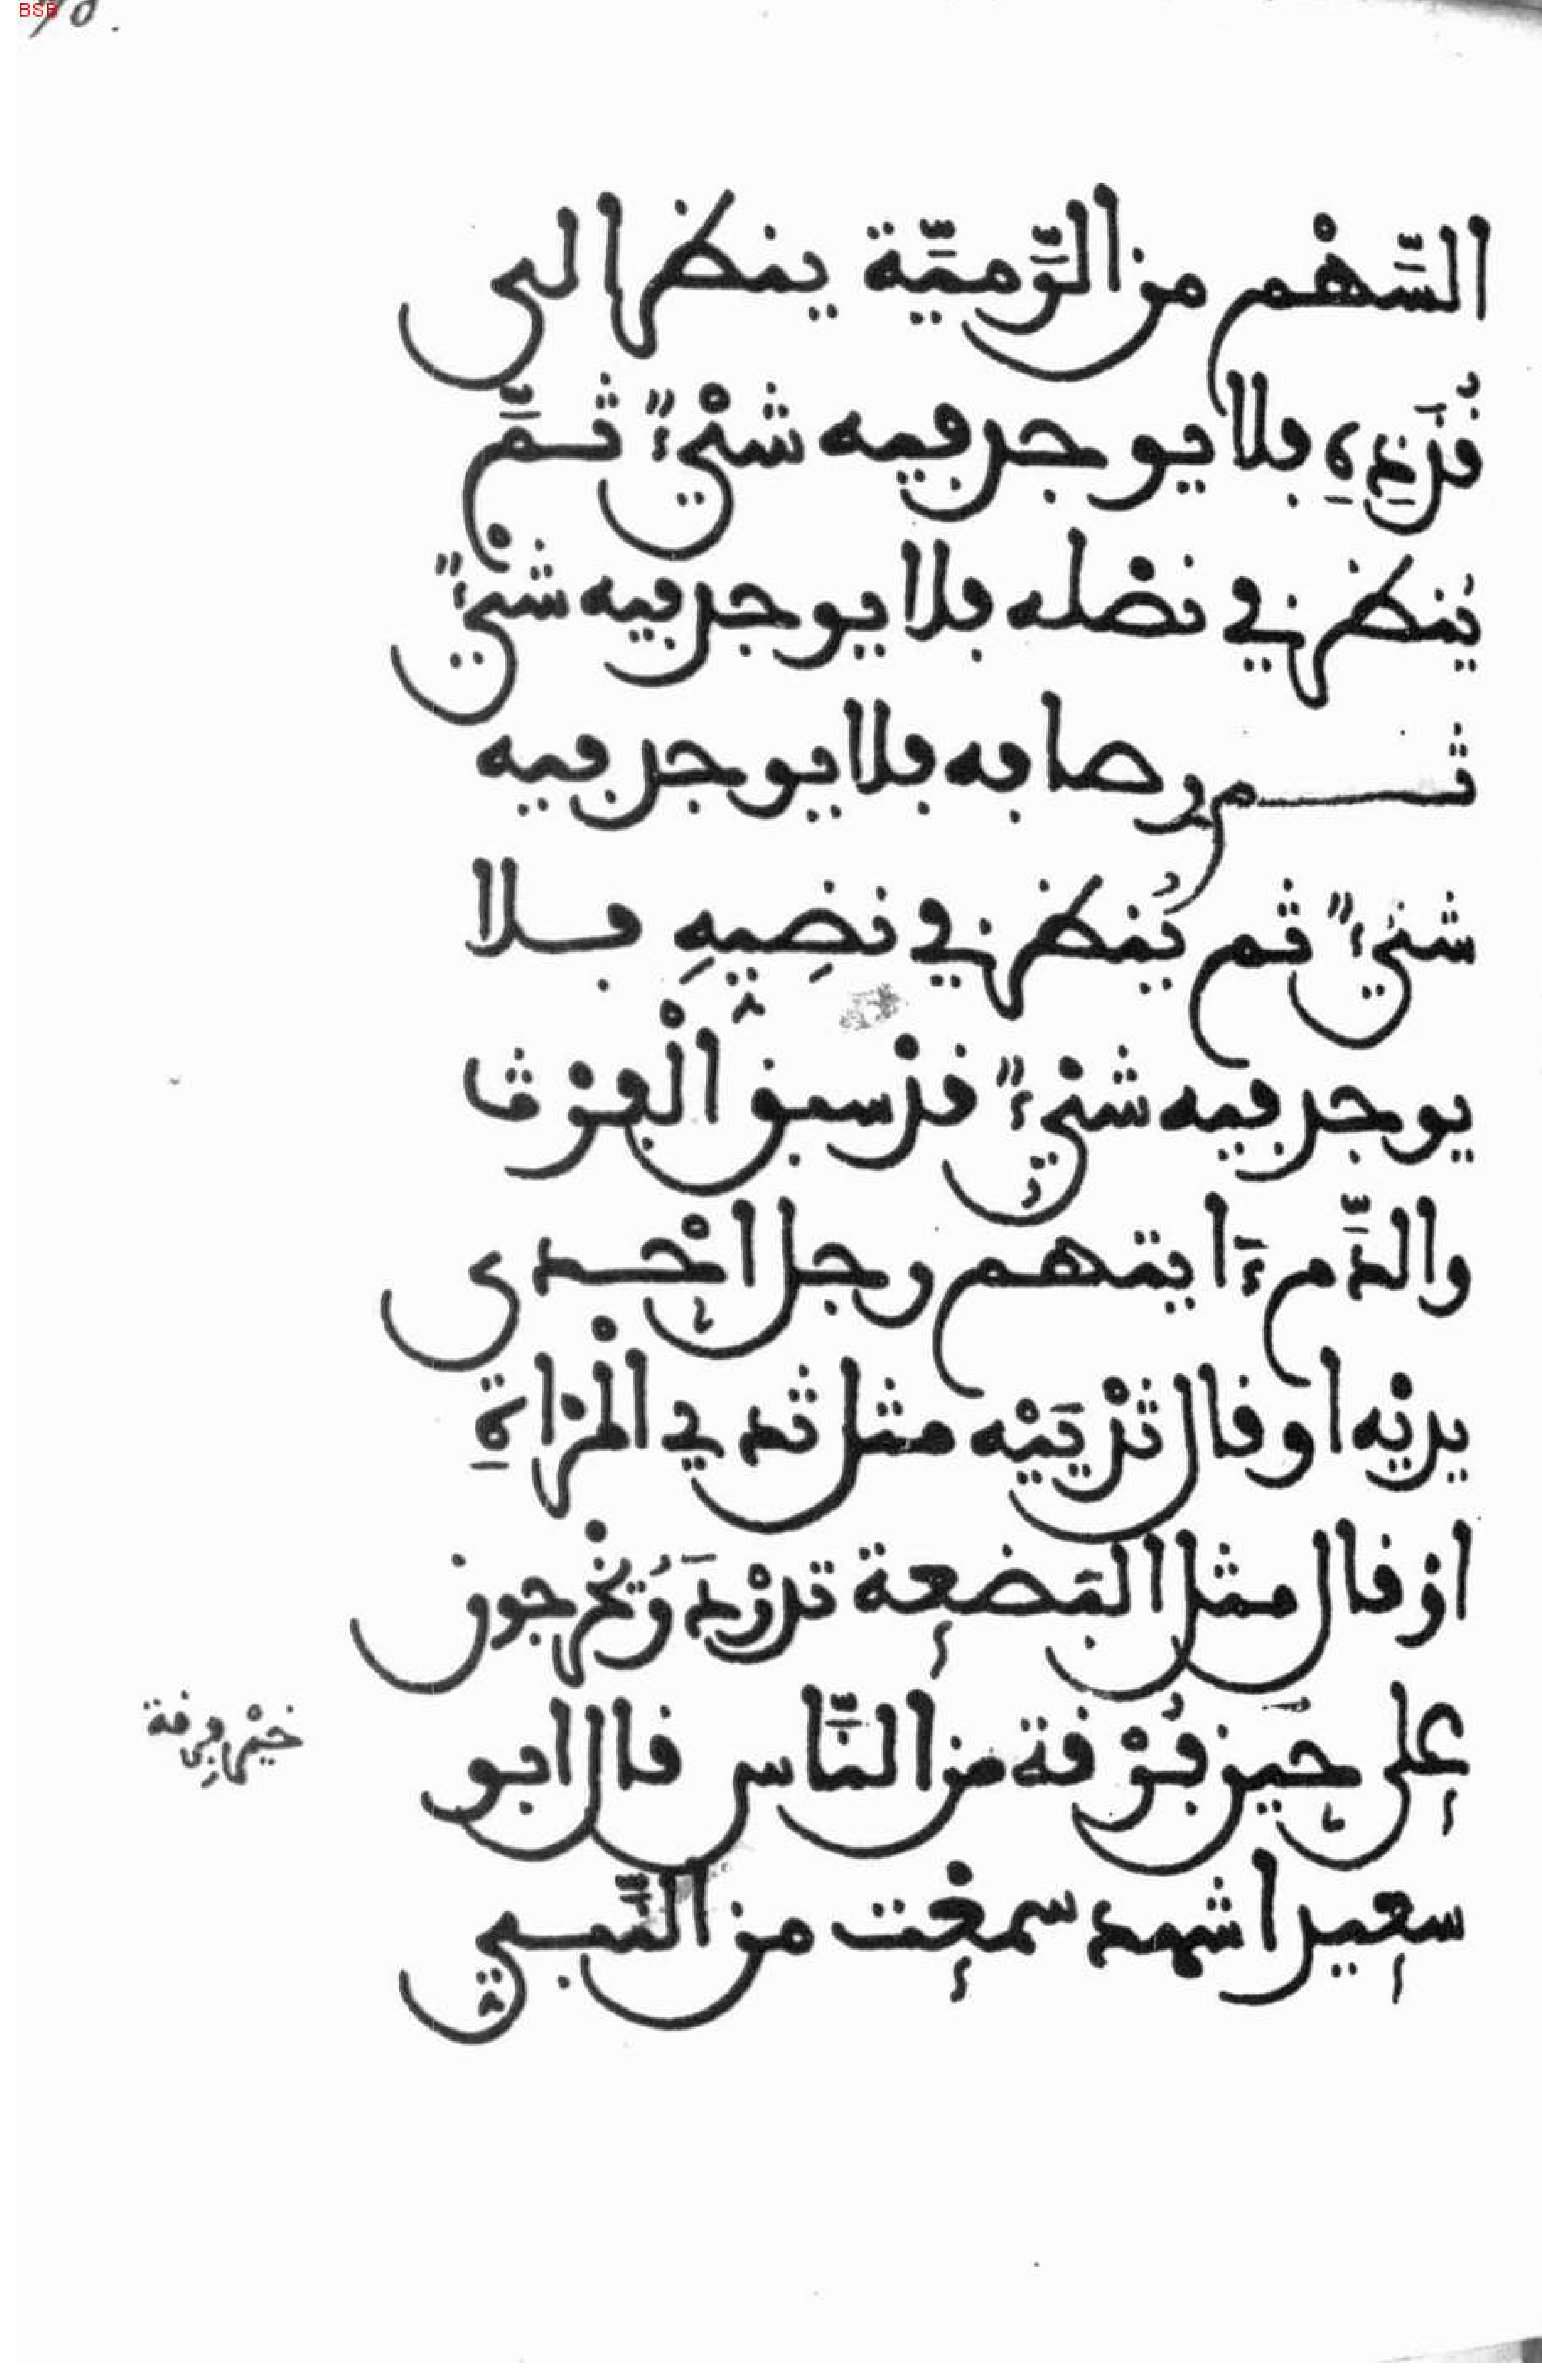 السَّهْم من الرَّمِيَّة ينظر الى
قُذَذِهِ فلا يوجد فيه شيْءٌ ثمَّ
يُنظر في نصْله فلا يوجد فيه شيْءٌ
ثم رصافه فلا يوجد فيه
شيْءٌ ثم يُنظر في نضِيِهِ فلا
يوجد فيه شيْءٌ قدْ سبق الْفرْث
والدَّم ءَايتهم رجل احْدى
يديْه او قال ثدْيَيْه مثل ثدي الْمرْاةِ
اوْ قال مثل البَضعة تدرْدَرُ يخْرجون
على حِين فُرْقة من النَّاس قال ابو
خيْر فِرقة
سعيد اشهد سمعْت من النَّبي